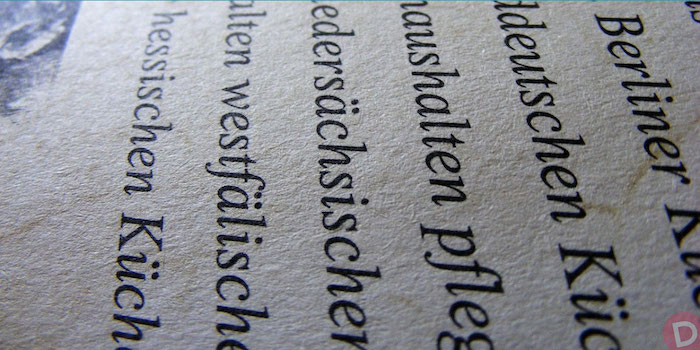 Berliner Küc
ddeutschen Küc
haushalten pfleg
edersächsischen
alten westfälische
hessischen Küch
D